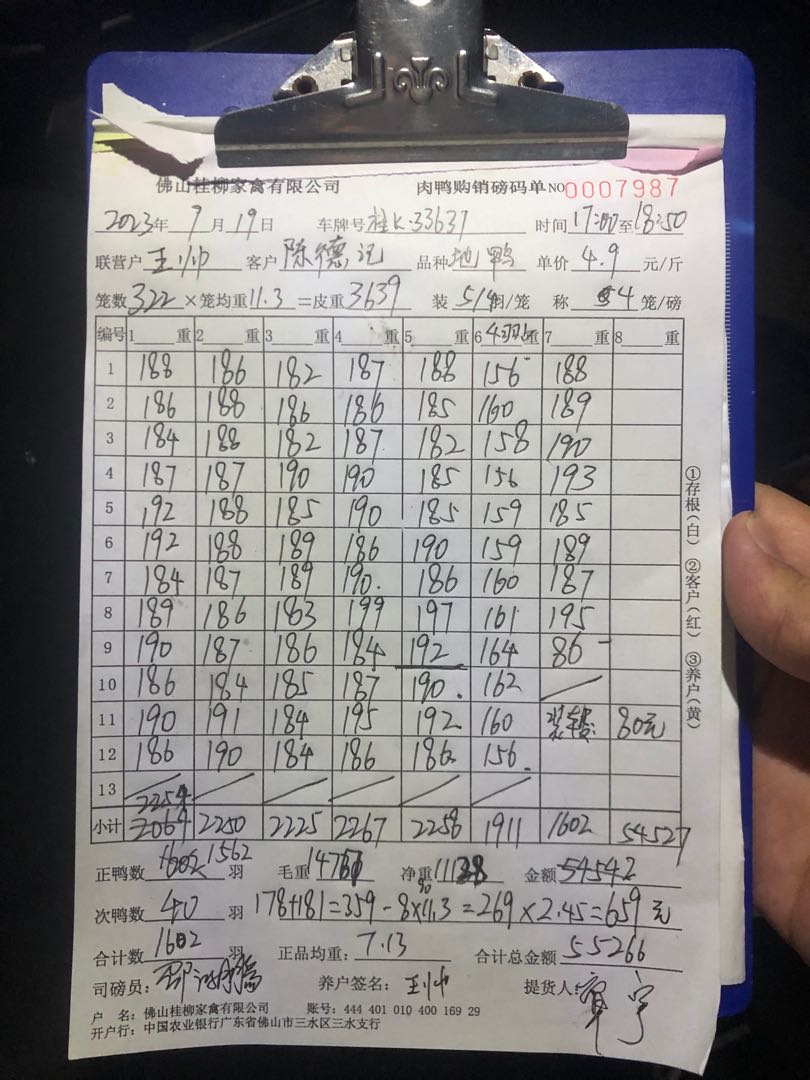 佛山桂柳家禽有限公司 肉鸭购销磅码单 NO 0007987
2023年 9月19日 车牌号 桂K·33637 时间 17:00至18:50
联营户 王帅 客户 陈德记 品种 地鸭 单价 4.9 元/斤
笼数 322 ×笼均重 11.3 =皮重 3639 装 5/4羽/笼 称 4 笼/磅
编号 1 重 2 重 3 重 4 重 5 重 6 4羽 重 7 重 8 重
1 188 186 182 187 188 156 188
2 186 188 186 186 185 160 189
3 184 188 182 187 182 158 190
4 187 187 190 190 185 156 193
5 192 188 185 190 185 159 185
6 192 188 189 186 190 159 189
7 184 187 189 190 186 160 187
8 189 186 183 199 197 161 195
9 190 187 186 184 192 164 86
10 186 184 185 187 190 162
11 190 191 184 195 192 160 装车费: 80元
12 186 190 184 186 186 156
13
2254
小计 2064 2250 2225 2267 2258 1911 1602 54527
正鸭数 1602 1562 羽 毛重 14767 净重 11128 金额 54542
次鸭数 40 羽 178+181=359-8×11.3=269×2.45=659元
90
合计数 1602 羽 正品均重: 7.13 合计总金额 55266
司磅员: 养户签名: 王帅 提货人: 宁
户 名: 佛山桂柳家禽有限公司 账号: 444 401 010 400 169 29
开户行: 中国农业银行广东省佛山市三水区三水支行
①存根(白) ②客户(红) ③养户(黄)